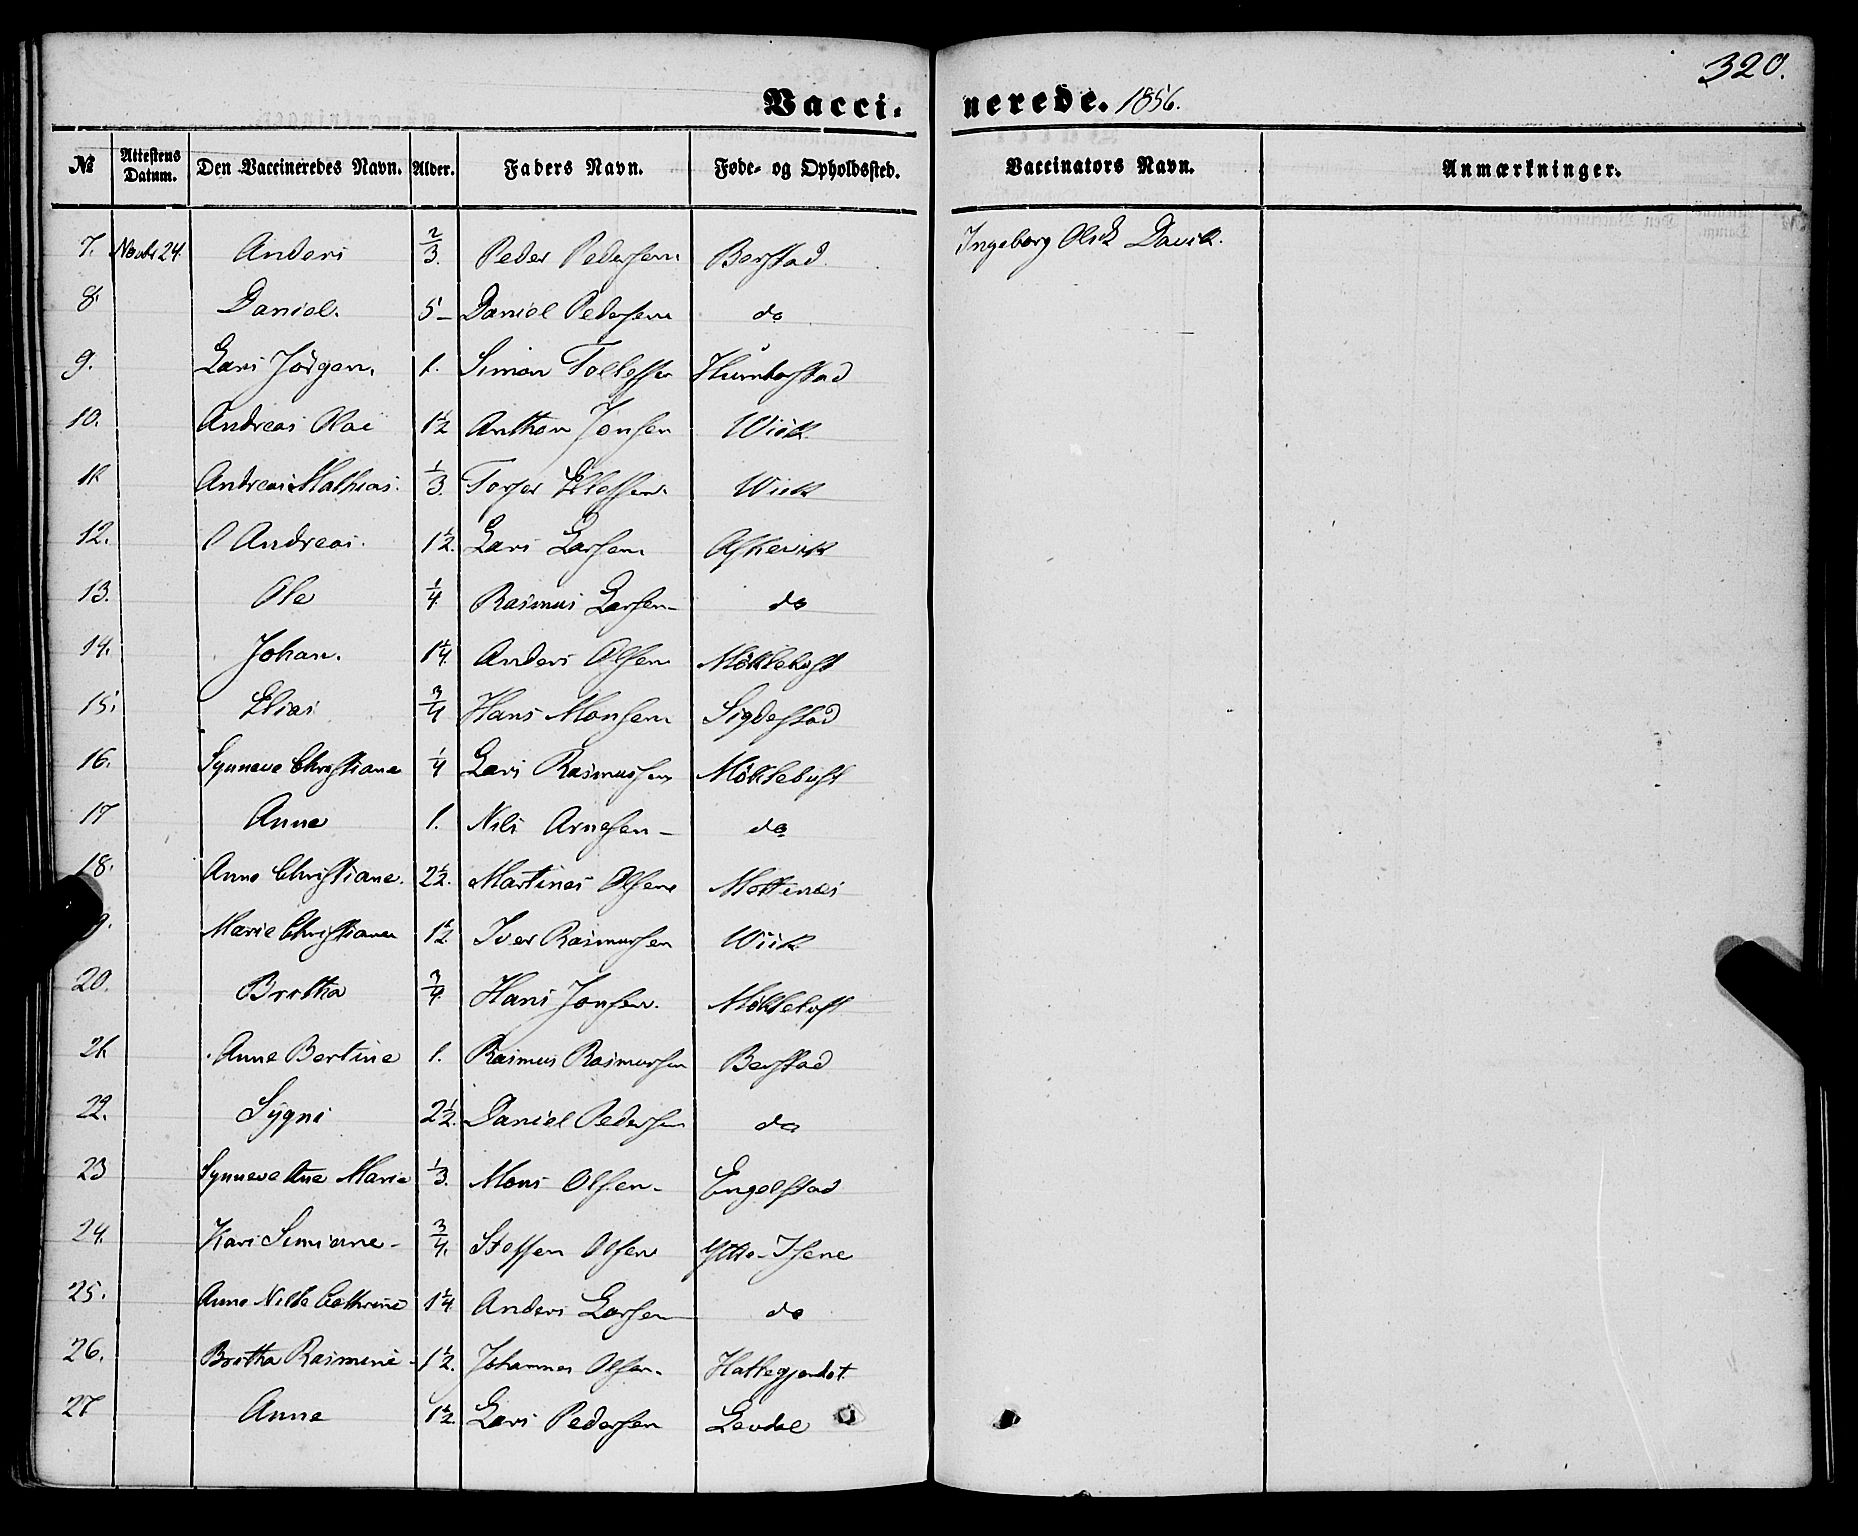 320.
Vacci- nerede. 1856.
№ Attestens Datum. Den Vaccineredes Navn. Alder. Faders Navn. Føde- og Opholdssted. Vaccinators Navn. Anmærkninger.
7. Novbr 24. Anders 2/3. Peder Pedersen Berstad Ingeborg Davik.
8. Daniel. 5 - Daniel Pedersen do
9. Lars Jørgen. 1. Simon
10. Andreas Olai 1 1/2 Anthon Jonsen Wiik
11. Andreas Mathias. 1/3. Torger Wiik
12. Andreas. 1 1/2. Lars Larsen Askevik
13. Ole 1/4 Rasmus Larsen - do
14. Johan. 1 1/4. Anders Olsen Møklebust
15. Elias 3/4 Hans Monsen Sigdestad
16. Synneve Christiane 1/4 Lars Rasmussen Møklebust
17 Anne 1. Nils Arnesen - do
18. Anne Christiane. 2 1/2. Martines Olsen
9. Marie Christiane 1 1/2 Iver Rasmussen Wiik
20. Brithe 3/4. Hans Jonsen. Møklebust
21 Anne Bertine 1. Rasmus Rasmussen Berstad
22. Sygni 2 1/2. Daniel Pedersen do
23 Synneve Ane Marie 1/3. Mons Olsen - Engelstad
24. Kari Simiane - 3/4. Steffen Olsen Ytre-Isene
25. Anne Nille Cathrine 1 1/4 Anders Larsen do
26. Brithe Rasmine - 1 1/2. Johannes Olsen. Hattegjerdet
27 Anne 1 1/2. Lars Pedersen Levdal